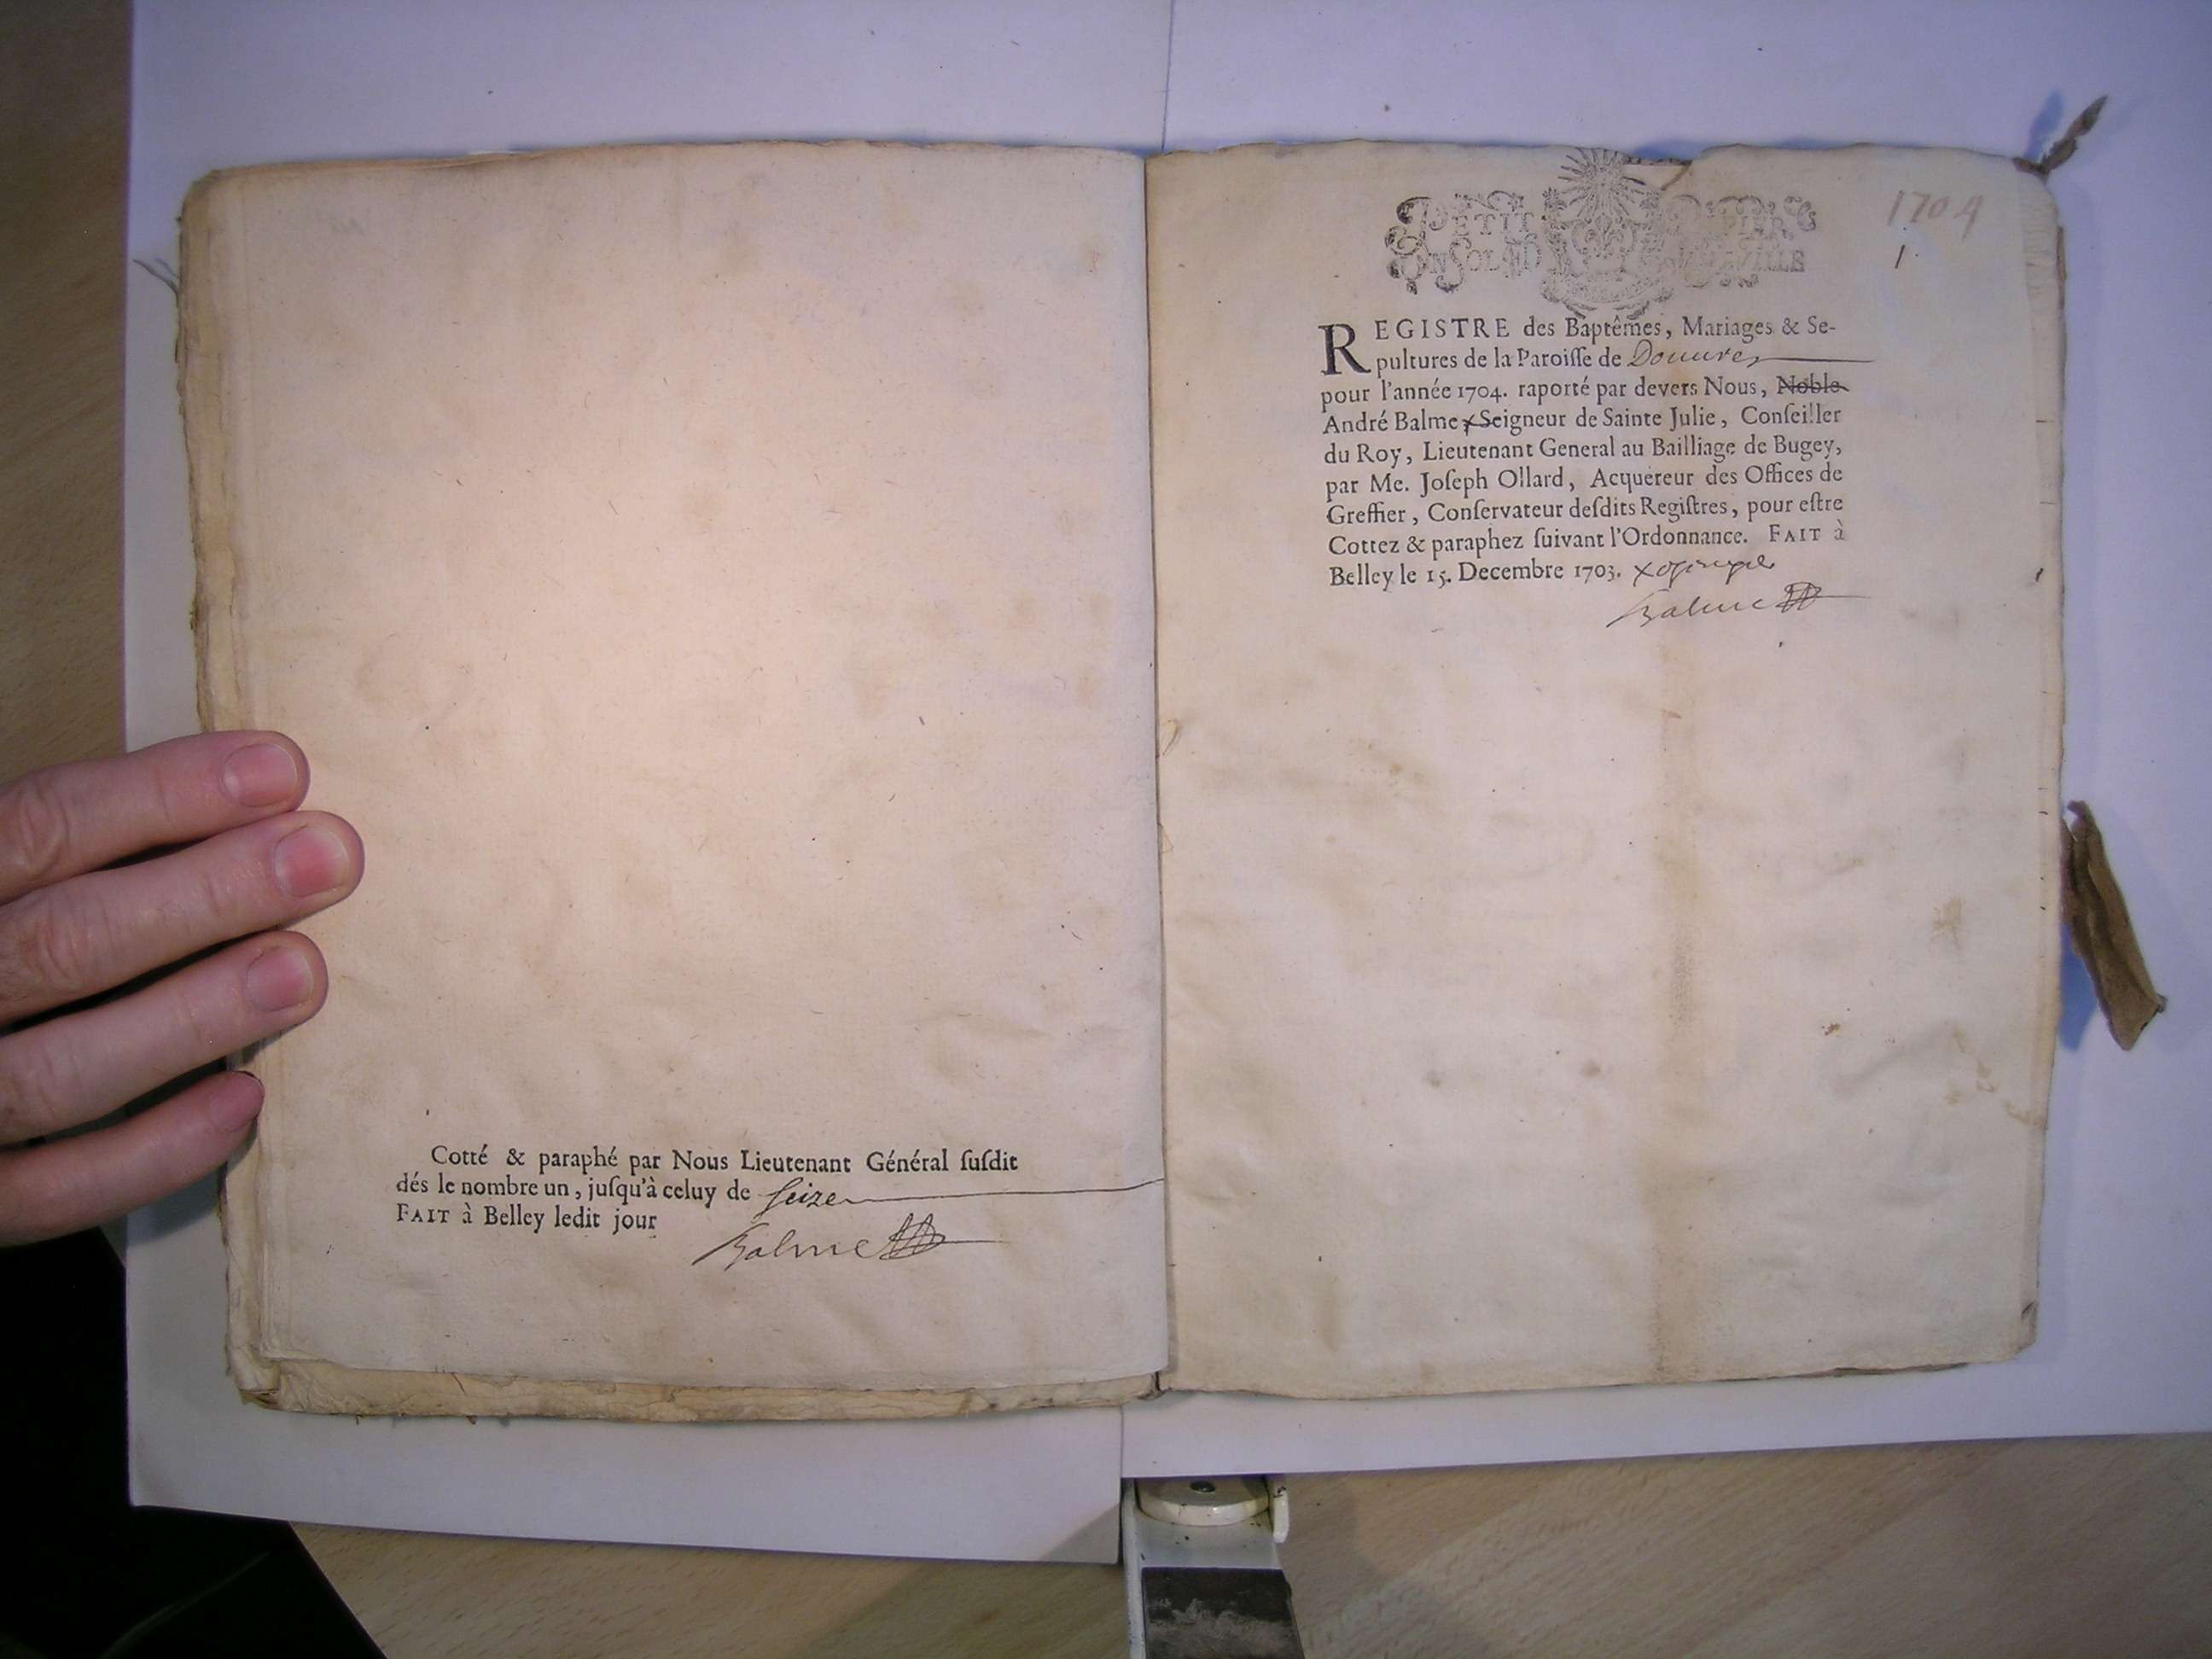 Cotté & paraphé par Nous Lieutenant Général ſuſdit
dés le nombre un, juſqu'à celuy de ſeize
FAIT à Belley ledit jour
Balme
PETIT PAPIER
UN SOL VILLE
1704
1
REGISTRE des Baptêmes, Mariages & Se-
pultures de la Paroiſſe de Douures
pour l'année 1704. raporté par devers Nous, Noble
André Balme Seigneur de Sainte Julie, Conſeiller
du Roy, Lieutenant General au Bailliage de Bugey,
par Me. Joſeph Ollard, Acquereur des Offices de
Greffier, Conſervateur deſdits Regiſtres, pour eſtre
Cottez & paraphez ſuivant l'Ordonnance. FAIT à
Belley le 15. Decembre 1703.
Balme